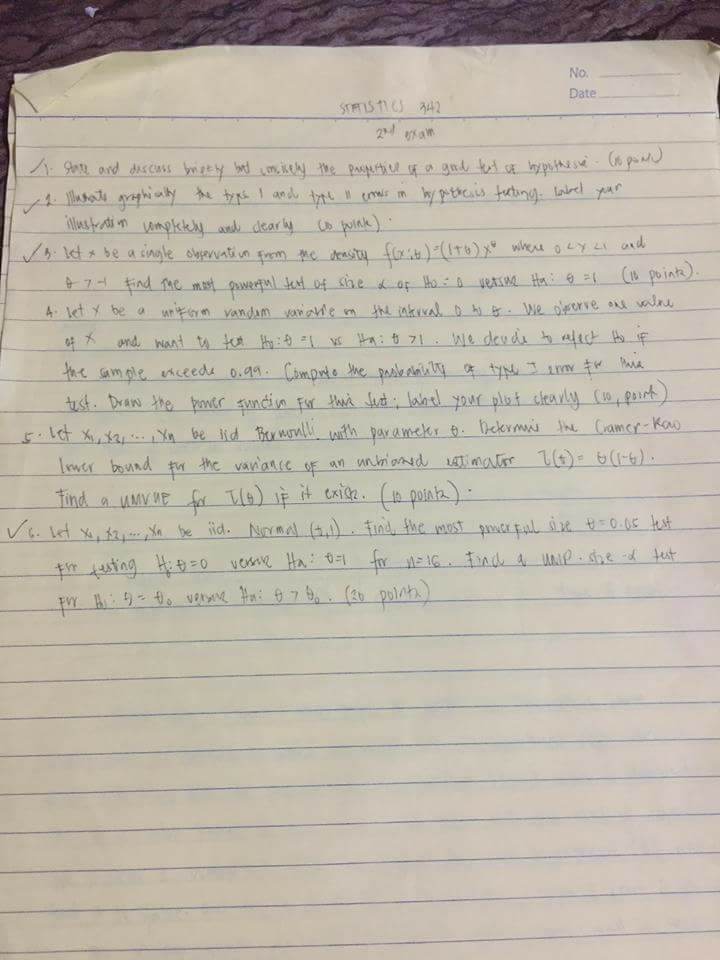 No.
Date
STATISTICS 342
2nd exam
1. State and discuss briefly but concisely the properties of a good test of hypothesis. (10 points)
2. Illustrate graphically the type I and type II errors in hypothesis testing. Label your
illustration completely and clearly (10 points).
3. Let x be a single observation from the density f(x;θ)=(1+θ)x^θ where 0<x<1 and
θ>-1 Find the most powerful test of size α of Ho=0 versus Ha: θ=1 (10 points).
4. Let X be a uniform random variable on the interval 0 to θ. We observe one value
of X and want to test Ho:θ=1 vs Ha:θ>1. We decide to reject Ho if
the sample exceeds 0.99. Compute the probability of type I error for this
test. Draw the power function for this test; label your plot clearly (10, point)
5. Let X1, X2, ..., Xn be iid Bernoulli with parameter θ. Determine the Cramer-Rao
lower bound for the variance of an unbiased estimator τ(θ)= θ(1-θ).
Find a UMVUE for τ(θ) if it exists. (10 points).
6. Let X1, X2, ..., Xn be iid. Normal (θ,1). Find the most powerful size θ=0.05 test
for testing Ho:θ=0 versus Ha: θ=1 for n=16. Find a UMP size-α test
for H: θ= θo versus Ha: θ > θo. (20 points)